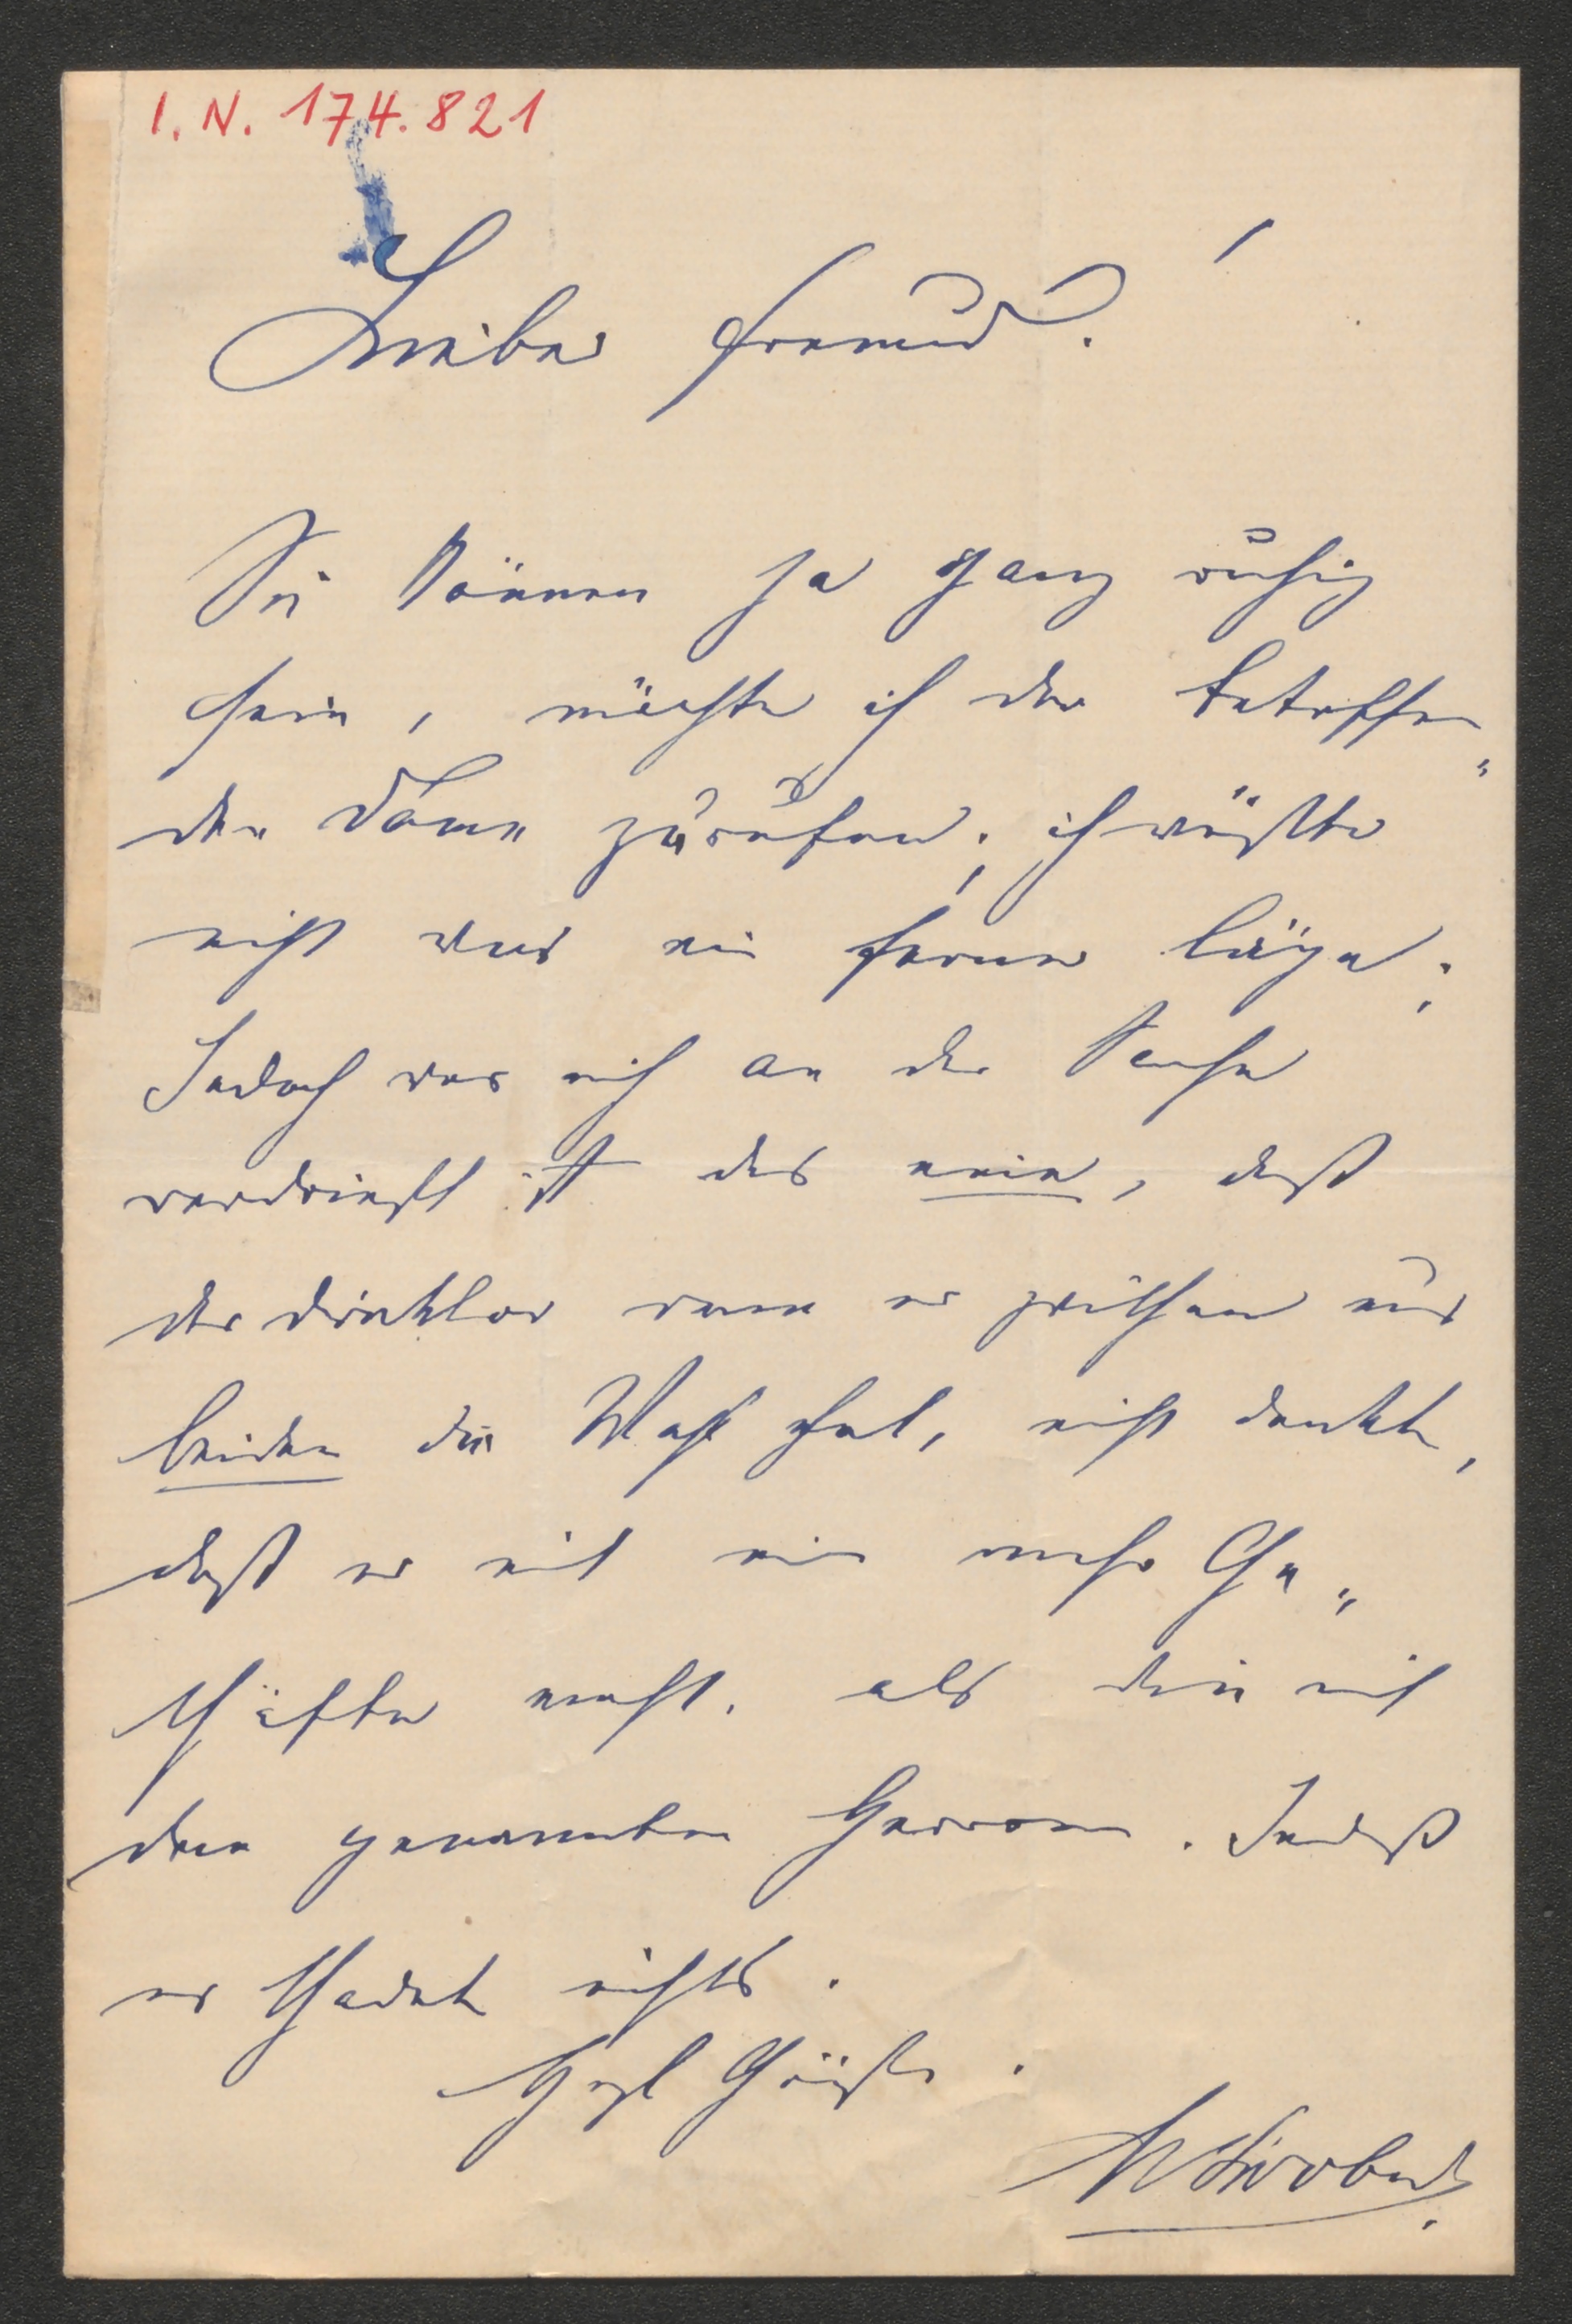 I. N. 174.821
Lieber Freund!
Sie können ja ganz ruhig
sein, möchte ich der betreffen„
den Dame zurufen; ich wüßte
nicht was mir ferner läge;
Jedoch was mich an der Sache
verdrießt ist das eine, daß
der Direktor wenn er zwischen uns
beiden die Wahl hat, nicht denkt,
daß er mit mir mehr Ge„
schäfte macht, als wie mit
dem genannten Herren. Indeß
es schadet nichts.
Hrzl Grüße.